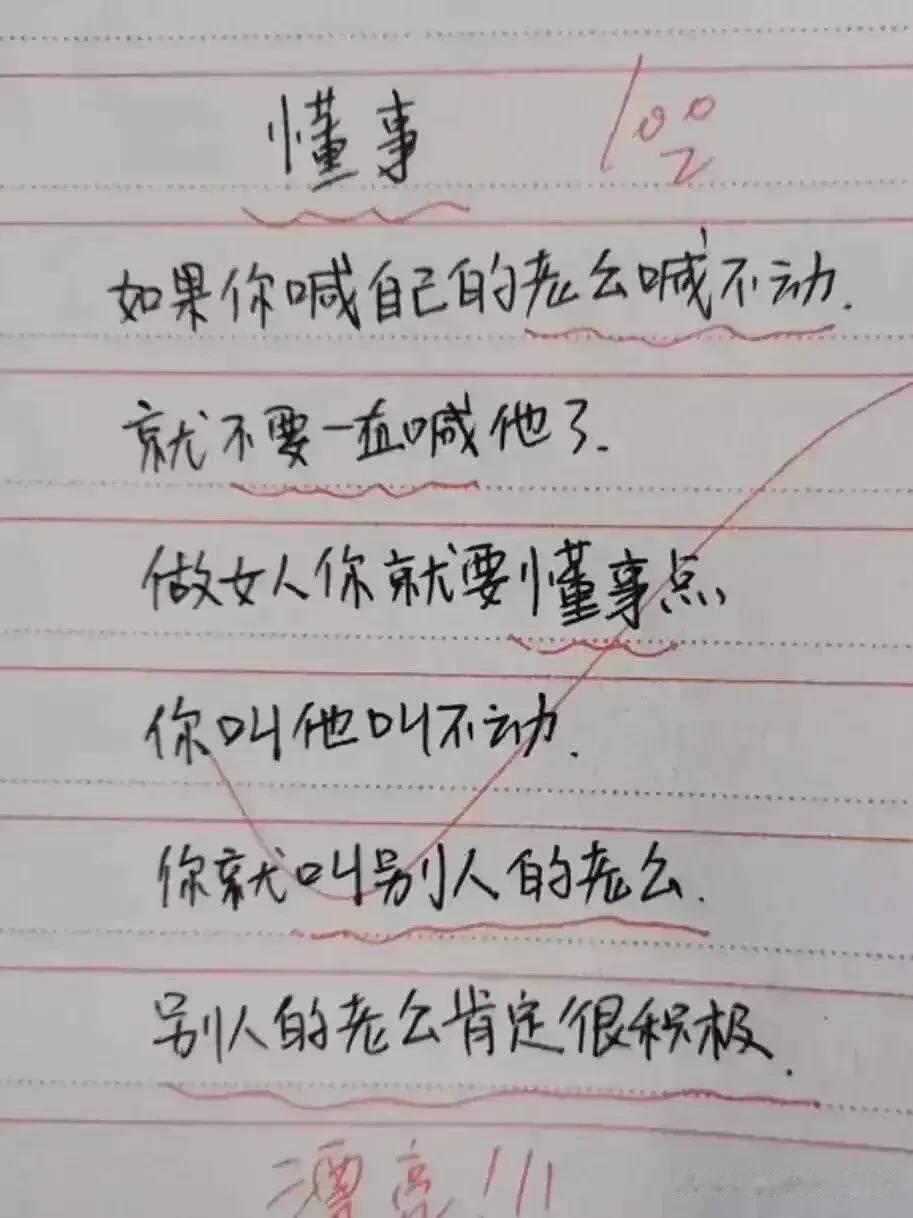 懂事 100
如果你喊自己的老公喊不动.
就不要一直喊他了.
做女人你就要懂事点
你叫他叫不动.
你就叫别人的老公.
别人的老公肯定很积极.
漂亮!!!